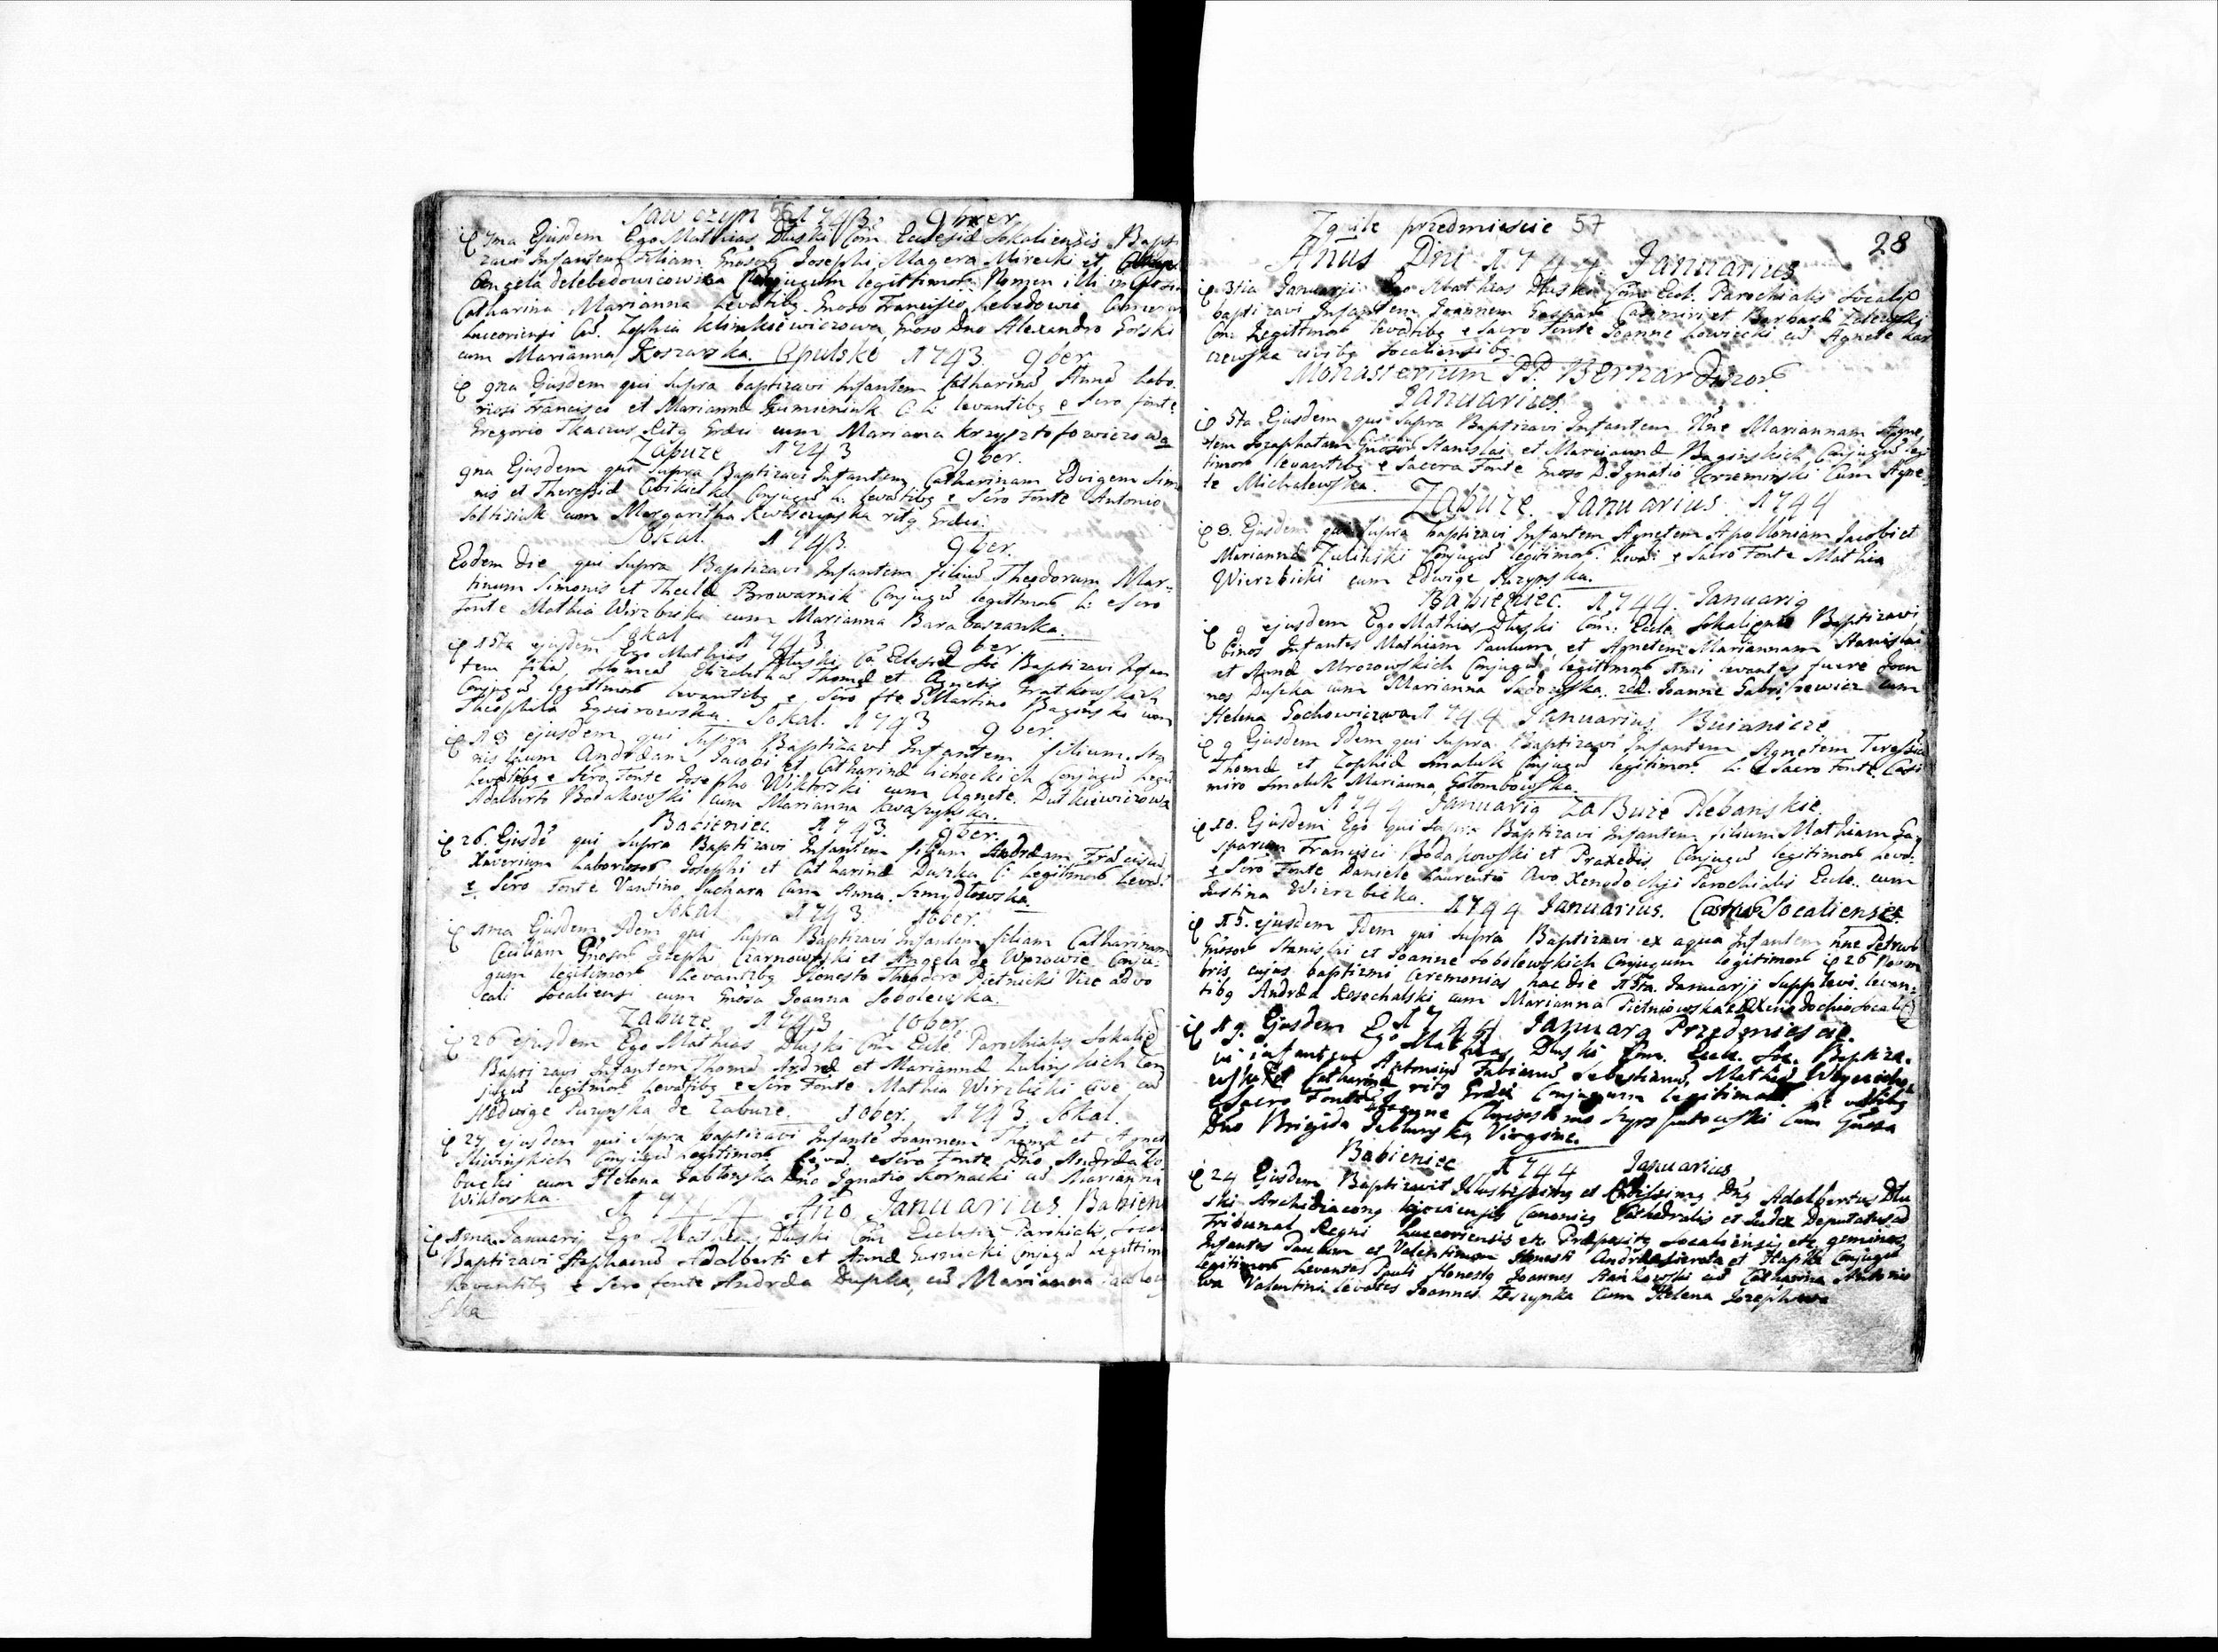 Sawczyn 56 1743. 9brer
7ma Ejusdem Ego Mathias Dluski Com Eclesiæ Sokaliensis Bapti
zavi Infantem Filiam Gnosor Josephi Magera Mirecki et
Angela de Lebedowicowiea Conjugum legittimor Nomen illi
Catharina Marianna Levatibg Gnoso Francisco Lebedowic
Luceoriensi Cū Zophia Klimkiewiczowa, Gnoso Dno Alexandro Gorski
cum Marianna Koszarska. Opulsko 1743. 9ber
9na Ejusdem qui supra baptizavi Infantem Catharinā Annā Labo.
riosi Francisci et Mariannæ Gumieniuk C. L. levantibg e Sero fonte
Gregorio Tkaczus Ritg Græci cum Mariana Krzysztofowiczowa
Zabuze 1743 9ber.
9na Ejusdem qui Supra Baptizavi Infantem Catharinam Edvigem Simo
nis et Theressiæ Conjugū L: levatibg e Sero Fonte Antonio
Soltisiuk cum Margaritha Kwasczynska ritg Græci.
Sokal. 1743. 9ber.
Eodem die qui supra Baptizavi Infantem filiū Theodorum Mar-
tinum Simonis et Theclæ Browarnik Conjugū legittimor L: e Sero
Fonte Mathia Wirzbicki cum Marianna Barabaszanka.
Sokal 1743 9ber.
15ta ejusdem Ego Mathias Dluski Co Eclesiæ Soc Baptizavi Infan
tem filiā Elizbethā Thomæ et Agnetis Fratkowskich
Conjugū legittimor levantibg e Sero fte G Martino Baginski cum
Theophila Gąsiorowska. Sokal. 1743 9ber.
18 ejusdem qui supra Baptizavi Infantem filium Sta
nislaum Andræam Jacobi et Catharinæ Licnockich Conjugū Legit
Levatibg e Sero Fonte Josepho Wiktorski cum Agnete Dutkiewiczowa
Adalberto Bodakowski cum Marianna Kwaszynska.
Babieniec 1743. 9ber.
26. Ejusdē qui Supra Baptizavi Infantem filium Andræam Franciscū
Xaverium Laboriosor Josephi et Catharinæ Duszka C: Legitimor Levā:
e Sero Fonte Vantino Suchara Cum Anna Szmydlowska.
Sokal 1743. 10ber.
1ma Ejusdem Idem qui Supra Baptizavi Infantem filiam Catharinam
Ceciliam Gnosor Josephi Czarnowski et Angela de Wzrowie Conju-
gum legitimor Levantibg Honesto Theodoro Pietnicki Vice advo
cati Socaliensi cum Gnosa Joanna Sobolewska.
Zabuze 1743 10ber.
26 ejusdem Ego Mathias Dluski Com Eccle Parochialis Sokalie
Baptizavi Infantem Thomā Andreæ et Mariannæ Zulinskich Con
jugū legitimor levatibg e Sero Fonte Mathia Wirzbicki Cive cū
Hedvige Puzynska de Zabuze. 10ber. 1743. Sokal.
27 ejusdem qui supra baptizavi Infantē Joannem Thomæ et Agnet
Sliwinskich Conjugū Legitimor Levā: e Sero Fonte Dno Andræa Ro
bucki cum Helena Jablonska Dno Ignatio Kornacki cū Marianna
Wiktorska. 1744 Ano Januarius. Babieni
1ma Januarij Ego Mathias Dluski Com Eclesiæ Parochialis Socal
Baptizavi Stephanū Adalberti et Annæ Gurnicki Conjugū Legittim
Levantibg e Sero fonte Andræa Dupka, cū Marianna
ska
Zguile przedmiescie 57
28
Anus Dni 1744. Januarius
3tia Januarij Ego Mathias Dluski Com Ecl. Parochialis Socaliē
baptizavi Infantem Joannem Gaspar Casimiri et Barbaræ Zalewski
Con Legittimor levatibg e Sacro Fonte Joanne Lowiecki cū Agnete Kar
czewska civibg Socaliensibg.
Monasterium PP. Bernardinor
Januarius.
5ta Ejusdem qui supra Baptizavi Infantem Nne Mariannam Agne
tem Jozaphatam Gnosor Stanislai et Mariannæ Baginskich Conjugū legi
timor levantibg e Sacera Fonte Gnoso D. Ignatio Krzeminski Cum Agne
te Michalewska.
Zabuze. Januarius. 1744
8. Ejusdem qui supra baptizavi Infantem Agnetem Apolloniam Jacobi et
Mariannæ Zulinski Conjugū legitimor: levā: e Sacro Fonte Mathia
Wierzbicki cum Edwige Puzynska.
Babieniec. 1744. Januarig
9 ejusdem Ego Mathias Dluski Com: Eccle Sokaliensis Baptizavi
binos Infantes Mathiam Paulum, et Agnetem Mariannam Stanislai
et Annæ Mrozowskich Conjugū legittimor Imi levantes fuere Joan
nes Duszka cum Marianna Sadowska. 2di. Joanne Gabriszewicz cum
Helena Gochowiczowa 1744 Januarius Buianicze
9 Ejusdem Idem qui supra Baptizavi Infantem Agnetem Teressiā
Thomæ et Zophiæ Smaluk Conjugū legitimor. L: e Sacro Fonte Casi
miro Smaluk Marianna Golombowska.
1744 Januarig Zabuze Plebanskie.
10. Ejusdem Ego qui Supra Baptizavi Infantem filium Mathiam Ga
sparum Francisci Bodakowski et Praxedis Conjugū legitimor Levā.
e Sero Fonte Daniele Laurentio Avo Xenodochji Parochialis Eccle. cum
Justina Wierzbicka. 1744 Januarius. Castrū Socaliensis.
15. ejusdem Idem qui supra Baptizavi ex aqua Infantem nne Petrum
Gnosor Stanislai et Joanne Sobolewskich Conjugum legitimor 26 Novem
bris cujus baptizmi Ceremonias hac die 15ta. Januarji Supplevi. levan-
tibg Andræa Rosechalski cum Marianna Pietniowska e Xenodochio Socali
1744 Januarg Przedmiescie.
19. Ejusdem Ego Mathias Dluski Com. Eccle. Soc. Baptiza.
vi infantem Antonium Fabianū Sebestianū, Mathiæ
et Catharinæ ritg Græci Conjugum legitimor. Le vatibg
e Sacro Fonte Chrisostomo Krzysztowski Cum Gnosa
Dno Brigida Jeblonska Virgine.
Babieniec 1744 Januarius
24 Ejusdem Baptizavit Illustrissimg et Dng Adalbertus Dlu
ski Archidiacong kijoviensis Canonicg Cathedralis et Judex Deputatus ad
Tribunal Regni Luceoriensis etc Præpositg Socaliensis etc geminos
Infantes Paulum et Valentinum Honesti Andreæ Sierota et Hapkæ Conjugū
legitimor Levantes Pauli Honestg Joannes Stankowski cū Catharina Antonio
wa Valentini levātes Joannes Leszynka Cum Helena Jozephowa